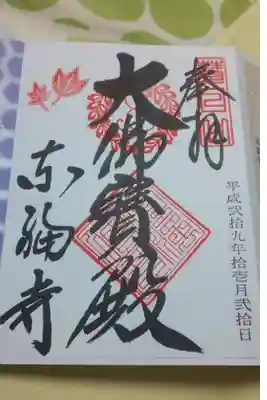 奉拝
平成弐拾九年拾壱月弐拾日
大佛寳殿
東福寺